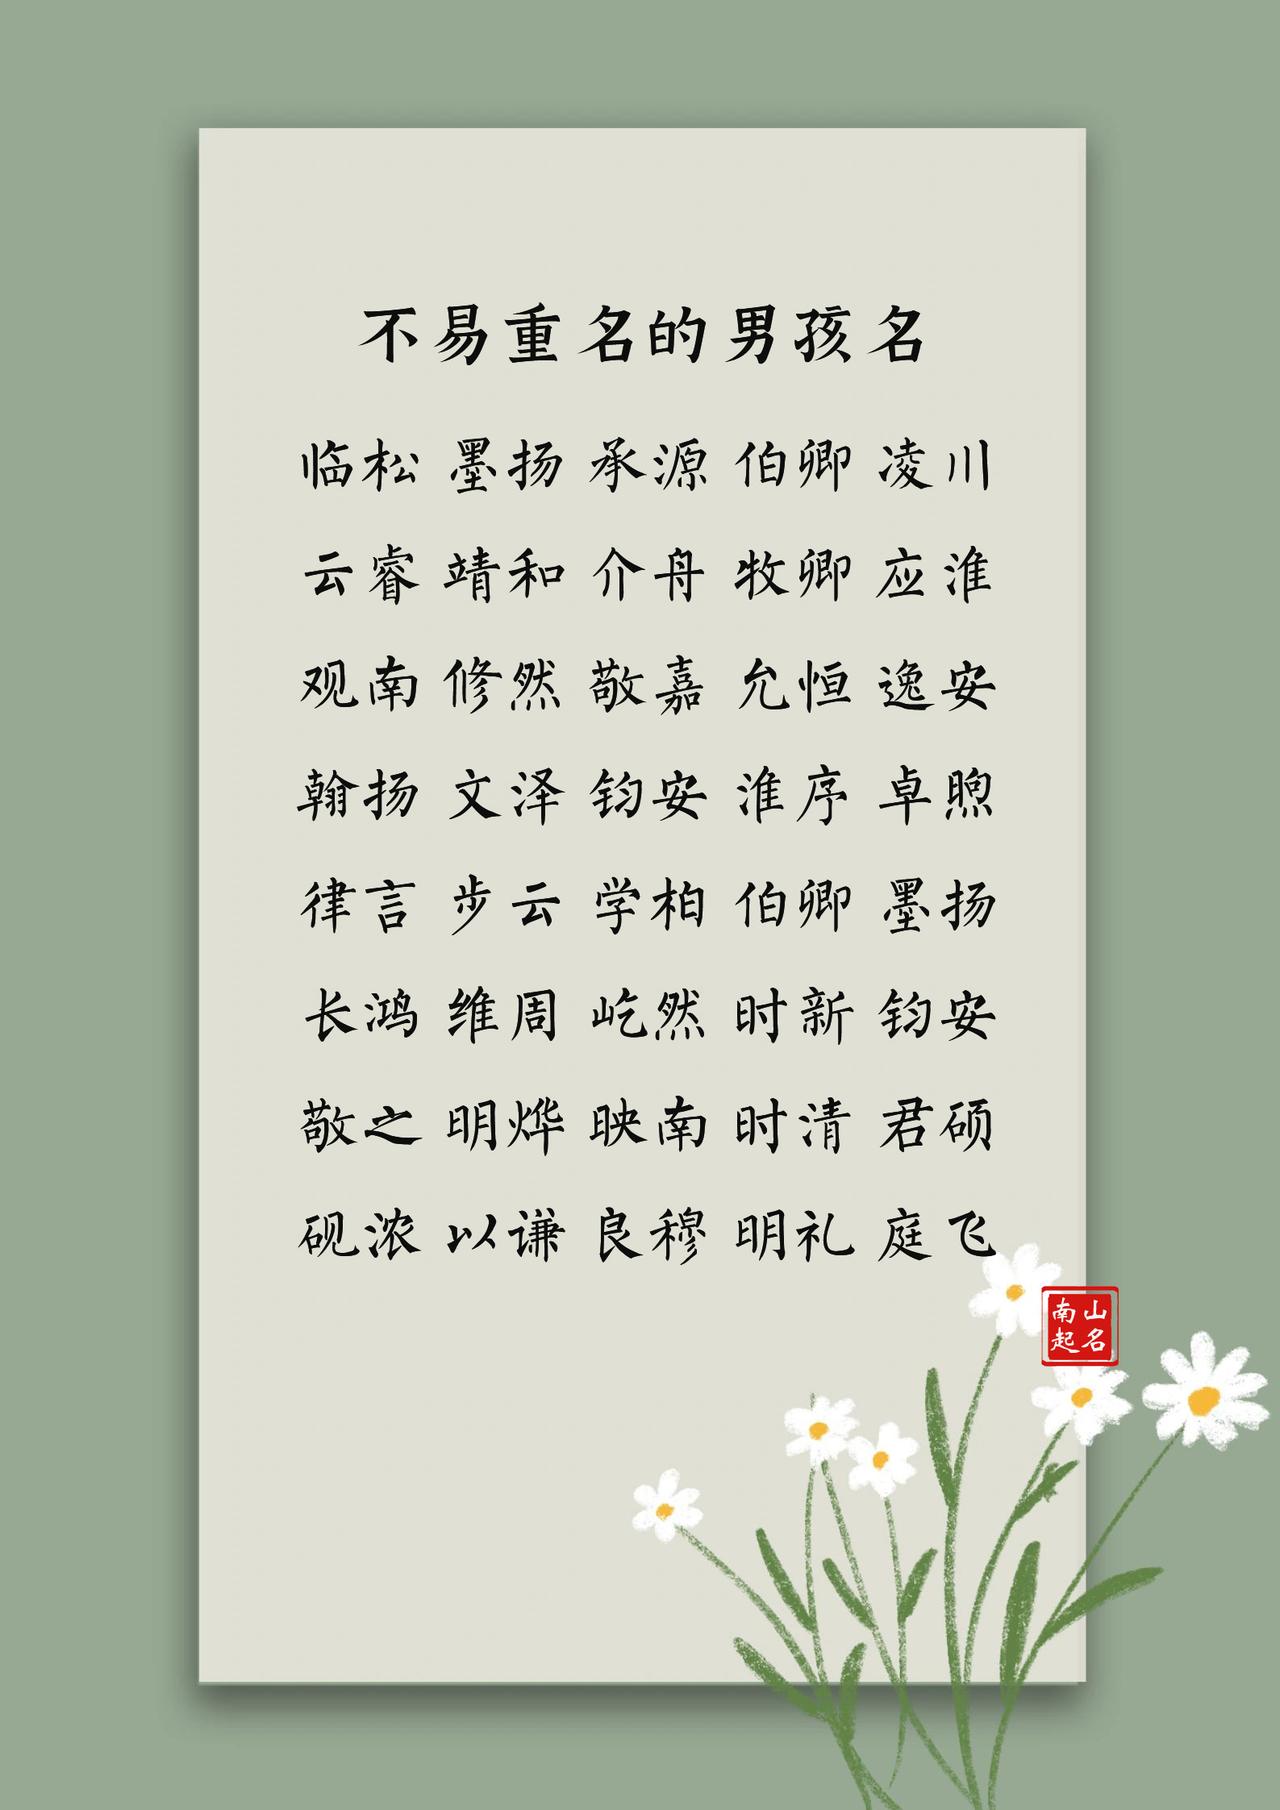 不易重名的男孩名
临松 墨扬 承源 伯卿 凌川
云睿 靖和 介舟 牧卿 应淮
观南 修然 敬嘉 允恒 逸安
翰扬 文泽 钧安 淮序 卓煦
律言 步云 学柏 伯卿 墨扬
长鸿 维周 屹然 时新 钧安
敬之 明烨 映南 时清 君硕
砚浓 以谦 良穆 明礼 庭飞
南山
起名